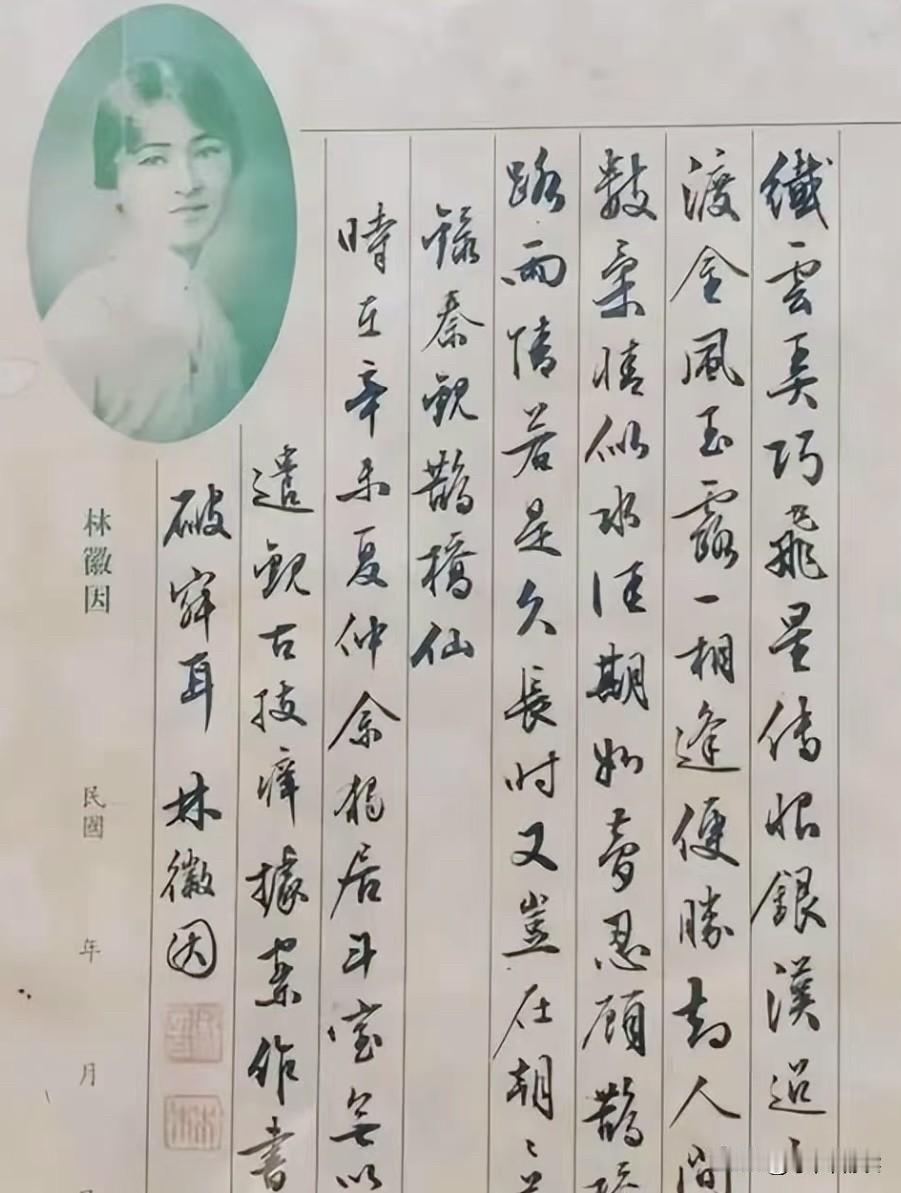 纖雲弄巧飛星傳恨銀漢迢〻
渡金風玉露一相逢便勝却人間
數柔情似水佳期如夢忍顧鵲
路兩情若是久長时又豈在朝〻
錄秦觀鵲橋仙
時在辛未夏仲余獨居斗室無以
遣觀古技痒據案作書
破寂耳 林徽因
林徽因
民國 年 月